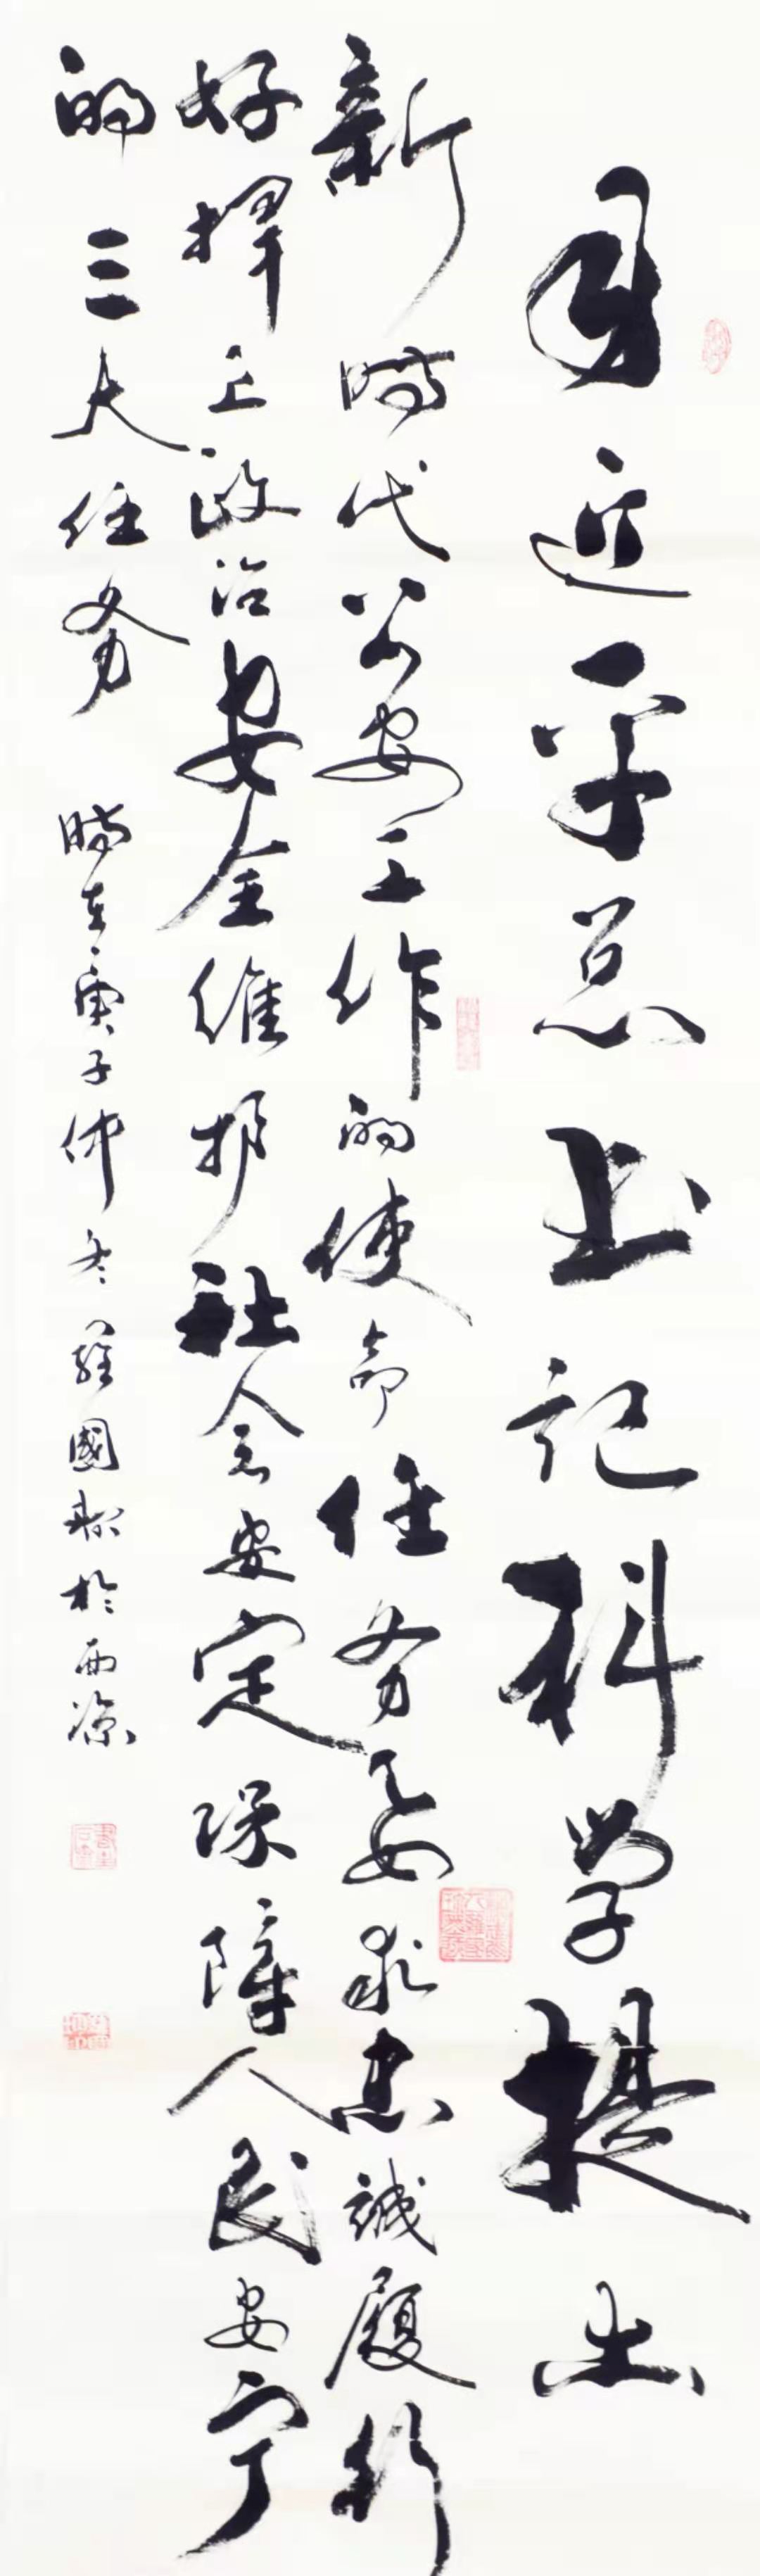 习近平总书记科学提出
新时代公安工作的使命任务要求忠诚履行
好捍卫政治安全维护社会安定保障人民安宁
的三大任务
时在庚子仲冬 罗國 於西凉